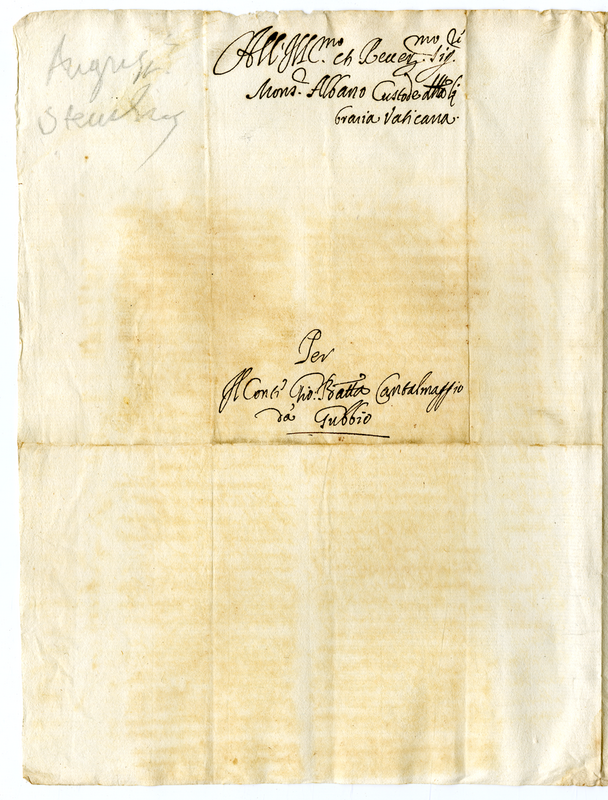 August.
Steuchus
All'Ill.mo et Rever.mo Sig.re
Mons.r Albano Custode della Li
braria Vaticana.
Per
Il Conte Gio: Batt.a Cantalmaggio
da Gubbio